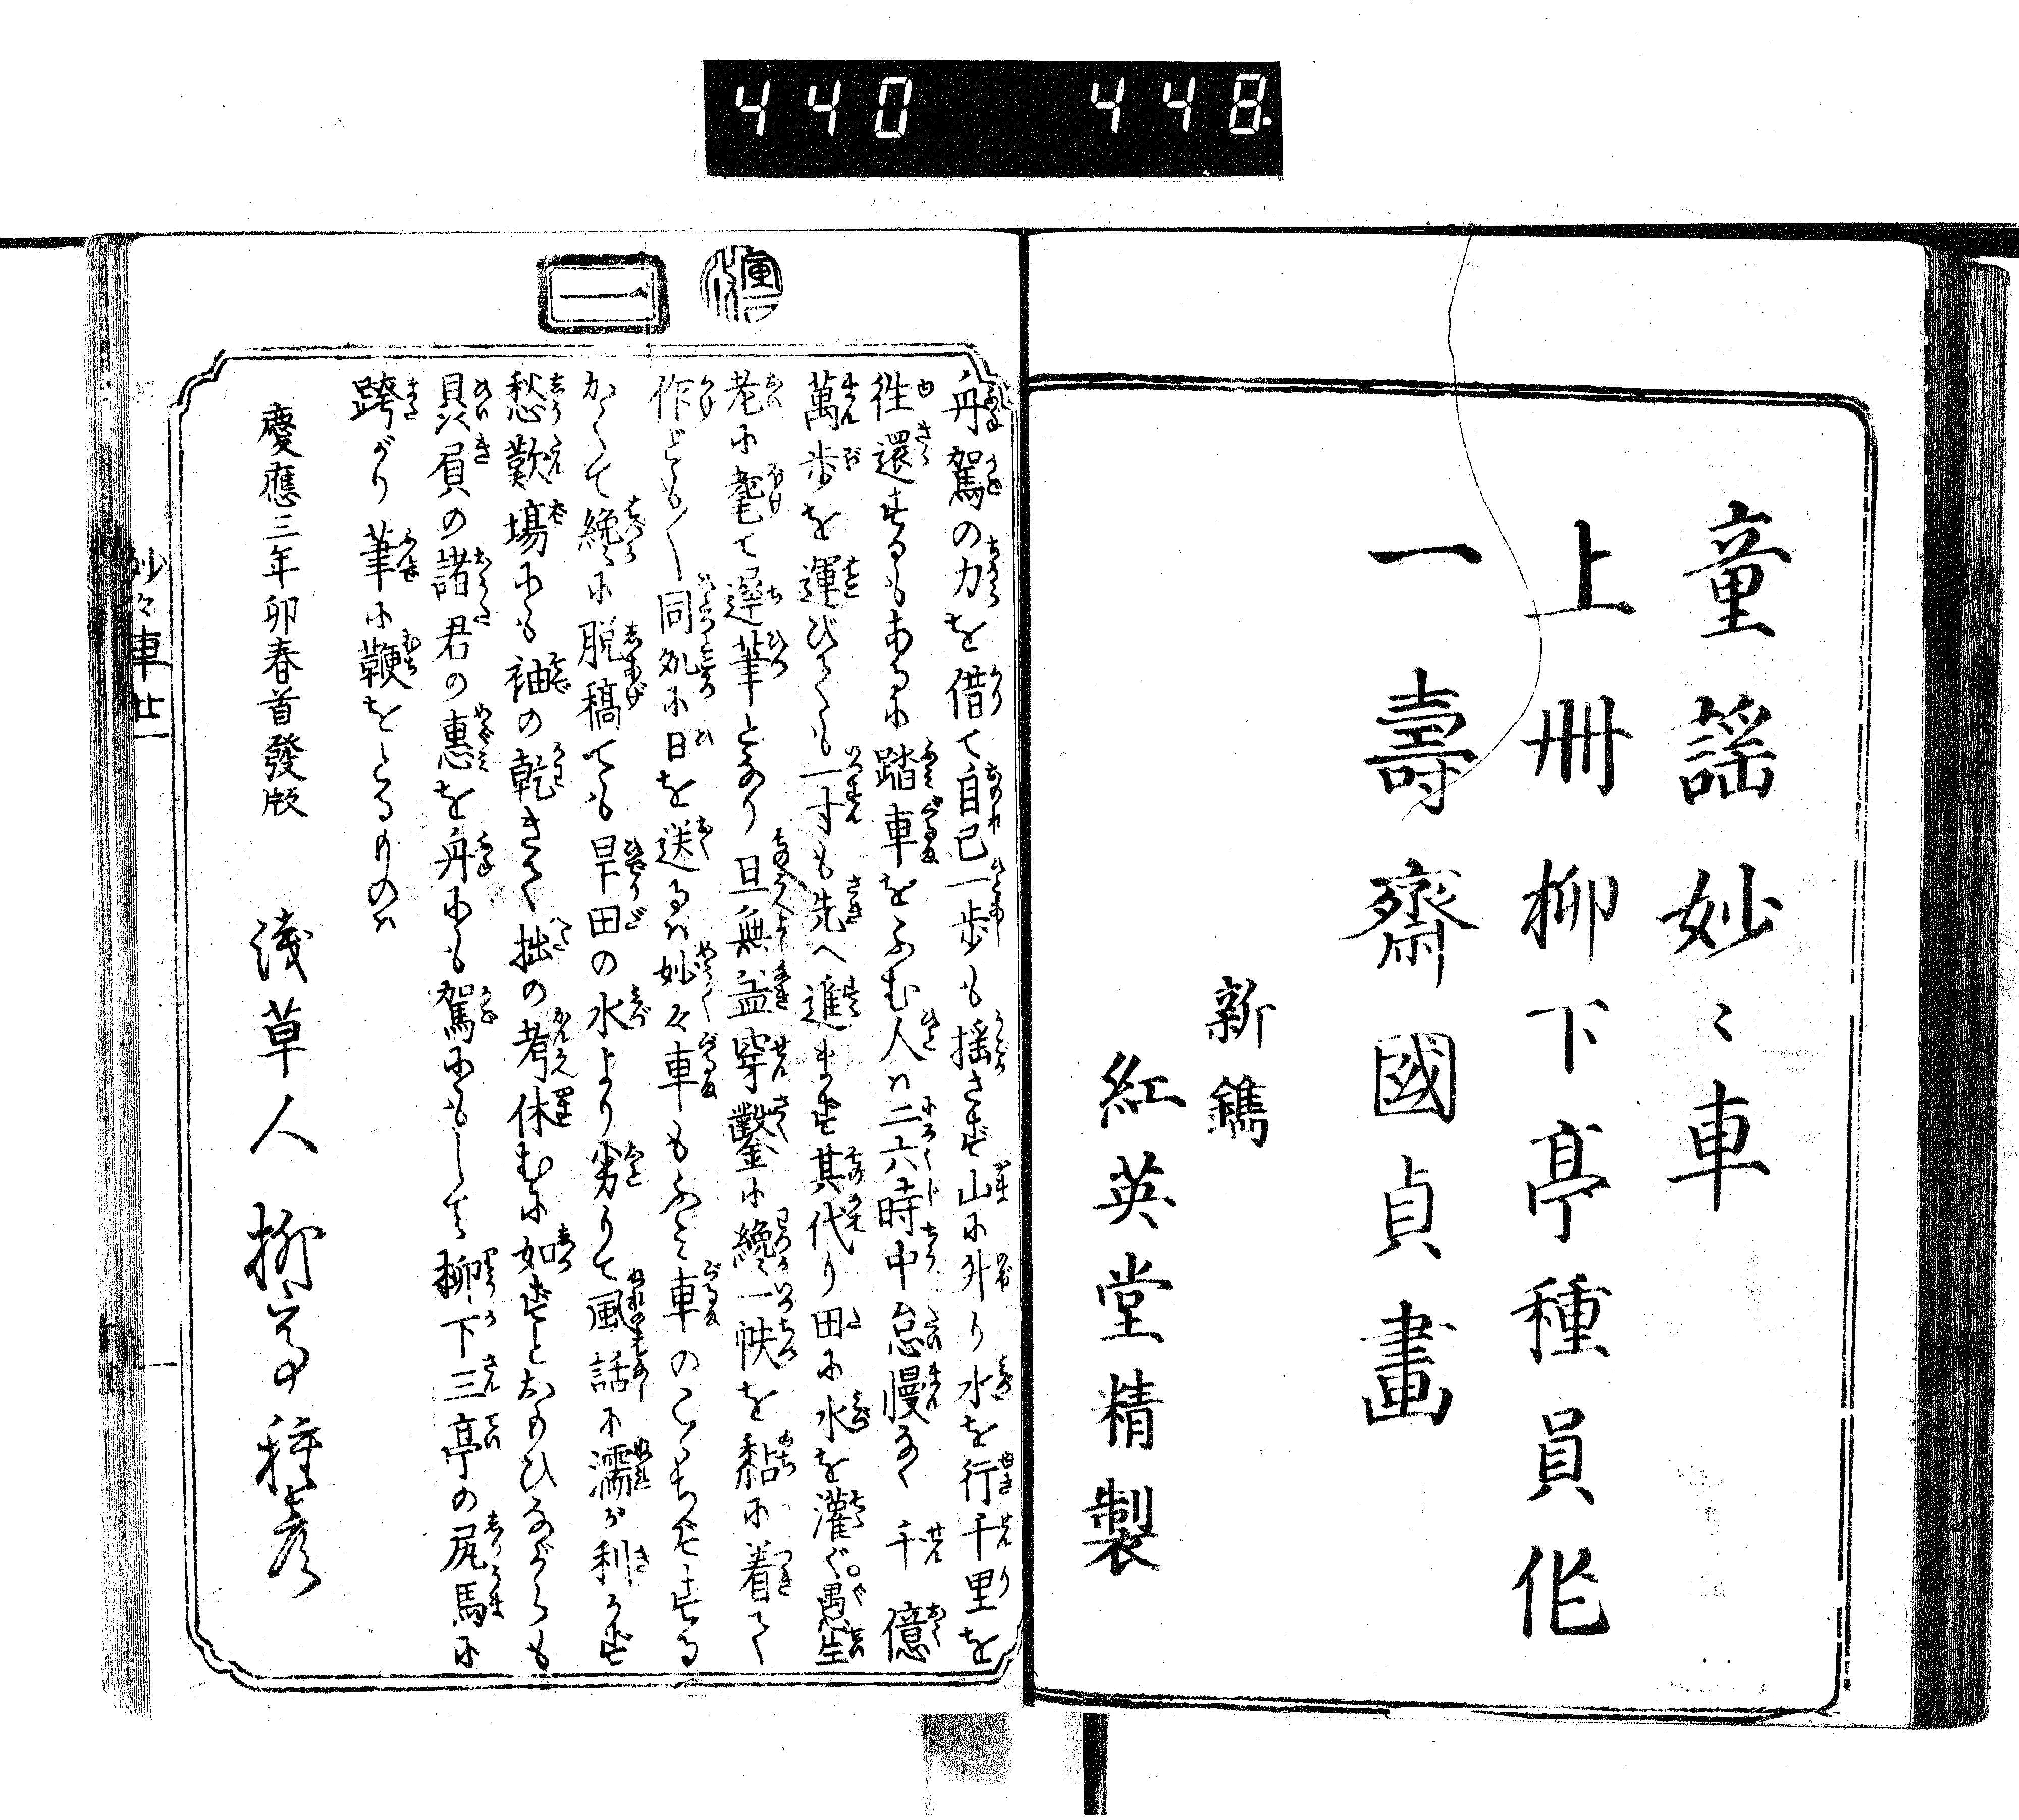 440 448.
童謡妙〻車
上冊柳下亭種員作
一壽齋國貞畫
新鐫
紅英堂精製
一
舟駕の力を借て自己一歩も揺さず山に升り水を行千里を
往還するもあるに踏車をふむ人ハ二六時中怠慢なく千億
萬歩を運びても一寸も先へ進まず其代り田に水を灌ぐ。愚生
老に耄て遅筆となり旦無益穿鑿に纔一帙を黏に着て
作ども〳〵同処に日を送るハ妙々車もふミ車のこゝちぞする
かくて纔に脱稿ても旱田の水より劣りて風話に濡が利かず
愁歎場にも袖の乾きて拙の考休むに如ずとおもひながらも
贔屓の諸君の惠を舟にも駕にもして柳下三亭の尻馬に
跨がり筆に鞭をとるものハ
慶應三年卯春首發版
淺草人 柳亭種彦
妙々車廿一
一